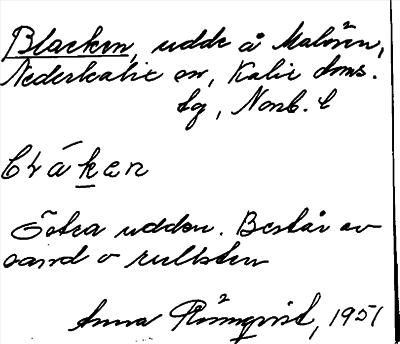 Blacken, udde å Malören,
Nederkalix sn, Kalix doms.
sg, Norrb. l
bláken
Östra udden. Består av
sand o rullsten
Anna Rönnqvist, 1951